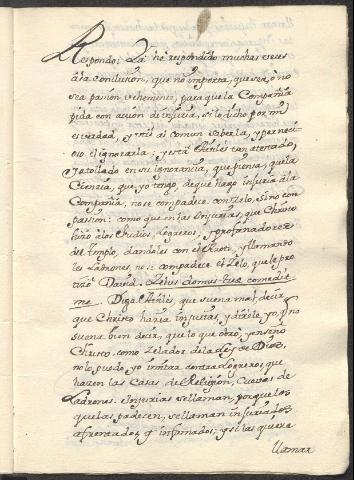 Respondo: Ya hé respondido muchas veces
à la conclusion, que no importa, que sea, ò no
sea pasion vehemente, para que la Compañia
pida con accion de injuria, si lo dicho por mí
es verdad, y útil al comun saberla, y pernici
oso el ignorarla: y está Athlés tan
y atollado en su ignorancia, que piensa, que la
Ciencia, que yo tengo, de que hago injuria à la
Compañia, no se compadece con Zelo, sino con
passion: como que en las injurias, que Christo
hizo à los Judios Logreros, y profanadores
del Templo, dandoles con el Azote, y llamando
les Ladrones, no se compadece el Zelo, que le pro
David. Zelus domus tuæ comedit
me. Diga Athlés, que suena mal, decir,
que Christo haria injurias, y diréle, yo, q no
suena bien decir, que lo que obró, y enseñó
Christo, como Zelador de la Ley de Dios,
no lo puedo yo imitar contra Logreros, que
hazen las Casas de Religion, Cuevas de
Ladrones. Injurias se llaman, porque los
que las padecen, se llaman injuriados,
afrentados, q infamados; y si las quiere
llamar